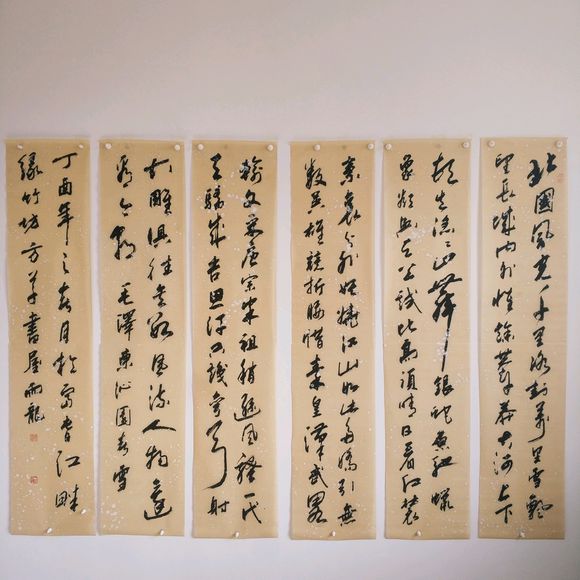 北國風光千里冰封萬里雪飄
望長城內外惟餘莽莽大河上下
頓失滔々山舞銀蛇原馳蠟
象欲與天公試比高須晴日看紅裝
素裹分外妖嬈江山如此多嬌引無
數英雄競折腰惜秦皇漢武略
輸文采唐宗宋祖稍遜風騷一代
天驕成吉思汗只識彎弓射
大雕俱往矣數風流人物還
看今朝 毛澤東沁園春雪
丁酉年之春月於富春江畔
綠竹坊方草書屋雨龍